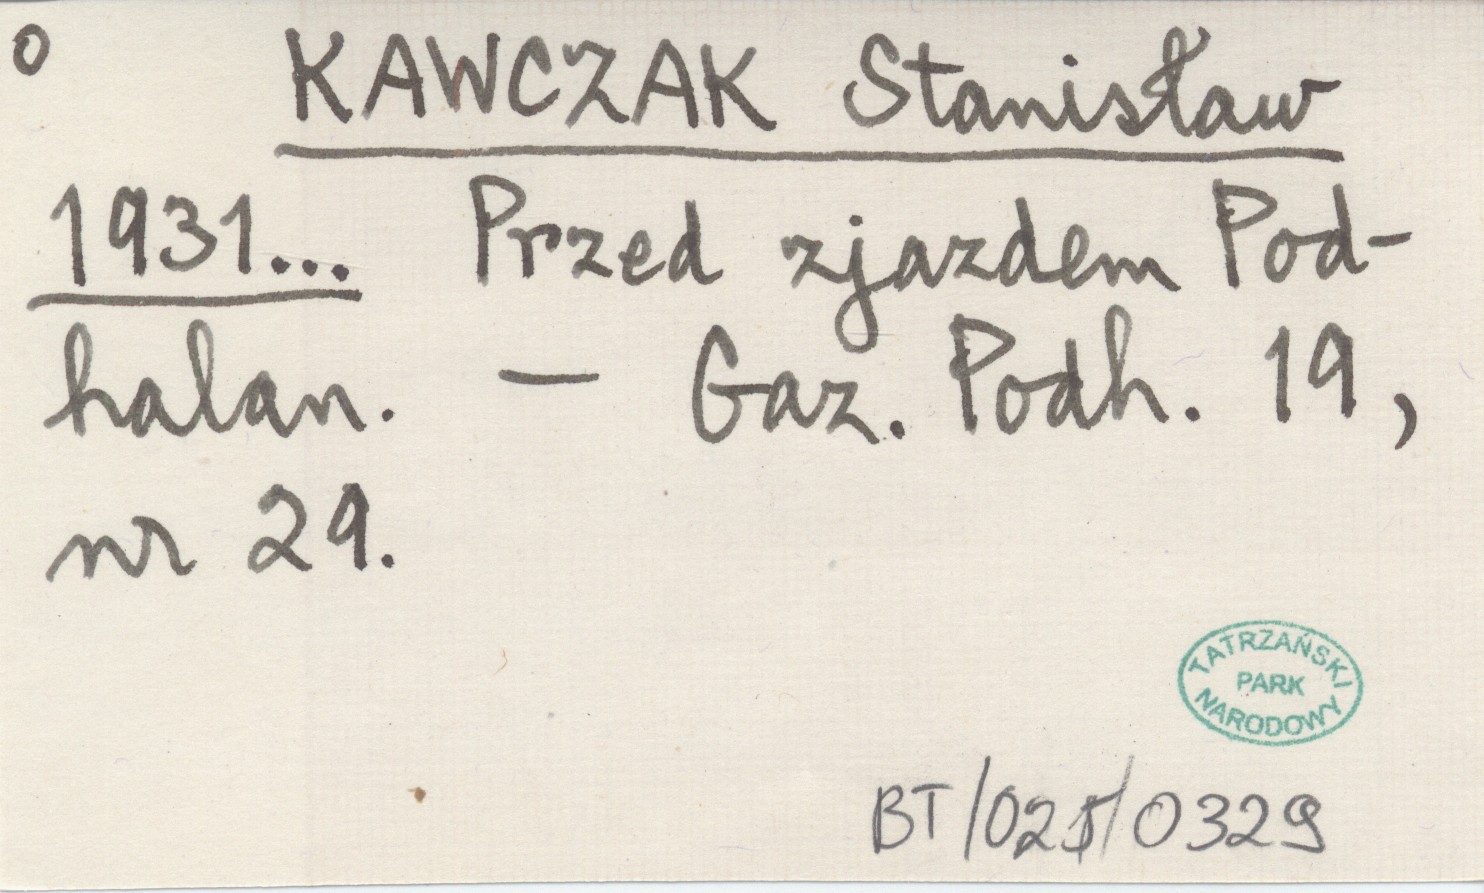 o KAWCZAK Stanisław
1931... Przed zjazdem Pod-
halan. – Gaz. Podh. 19,
nr 29.
TATRZAŃSKI
PARK
NARODOWY
BT/025/0329